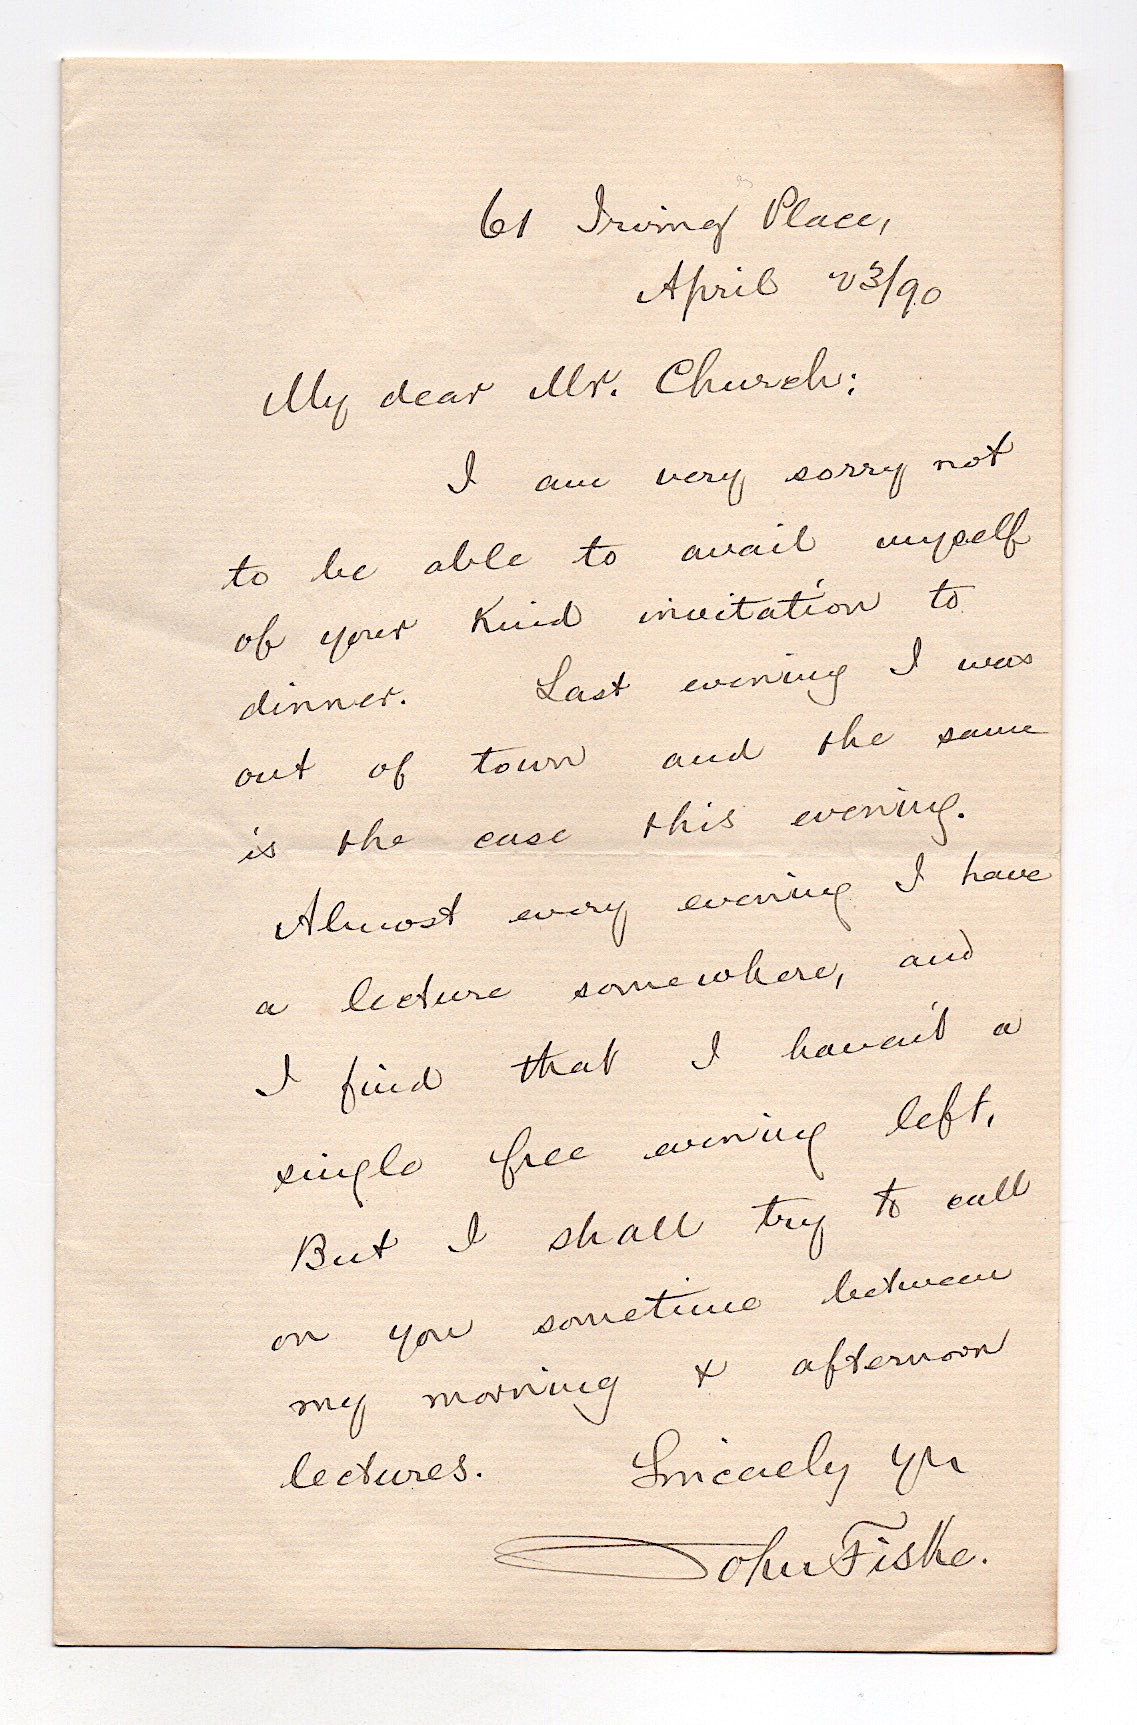 61 Irving Place,
April 23/90
My dear Mr. Church:
I am very sorry not
to be able to avail myself
of your kind invitation to
dinner. Last evening I was
out of town and the same
is the case this evening.
Almost every evening I have
a lecture somewhere, and
I find that I haven't a
single free evening left.
But I shall try to call
on you sometime between
my morning & afternoon
lectures. Sincerely yrs
John Fiske.